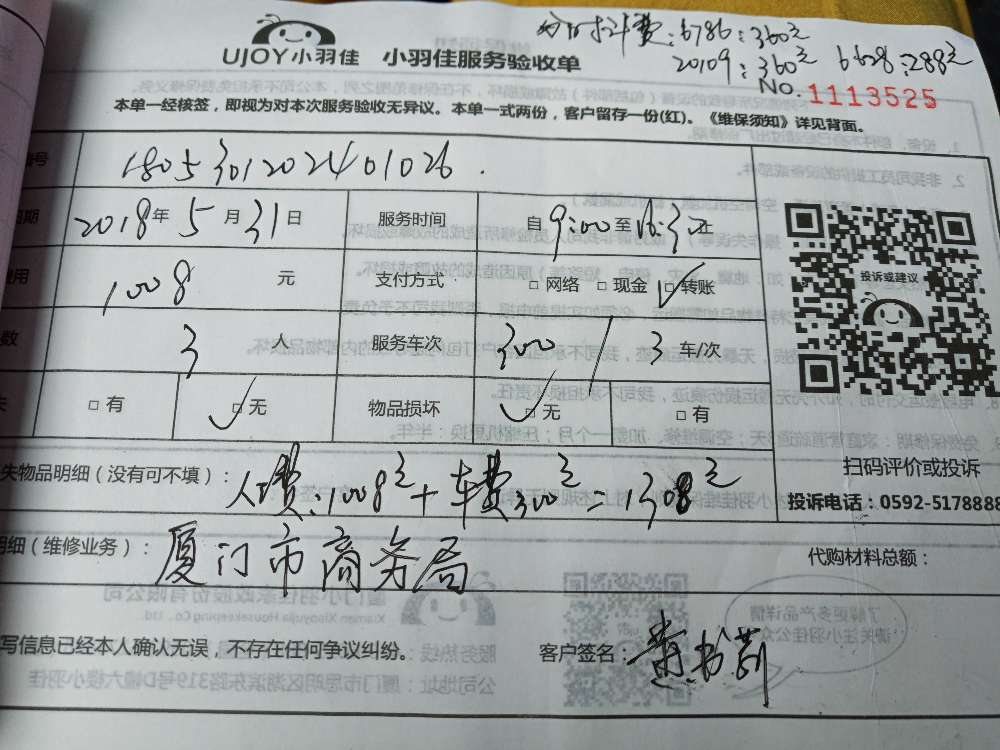 UJOY小羽佳 小羽佳服务验收单
费:6786:360元
20109:360元 6628:288元
No. 1113525
本单一经核签，即视为对本次服务验收无异议。本单一式两份，客户留存一份(红)。《维保须知》详见背面。
编号 1805301202401026
日期 2018年5月31日 服务时间 自9:00至16:30止
费用 1008元 支付方式 □网络 □现金 □转账
数 3人 服务车次 300/3车/次
失 □有 □无 物品损坏 □无 □有
投诉或建议
扫码评价或投诉
投诉电话：0592-5178888
失物品明细（没有可不填）：人工费:1008元+车费300元=1308元
明细（维修业务）：厦门市商务局 代购材料总额：
写信息已经本人确认无误，不存在任何争议纠纷。 客户签名：黄